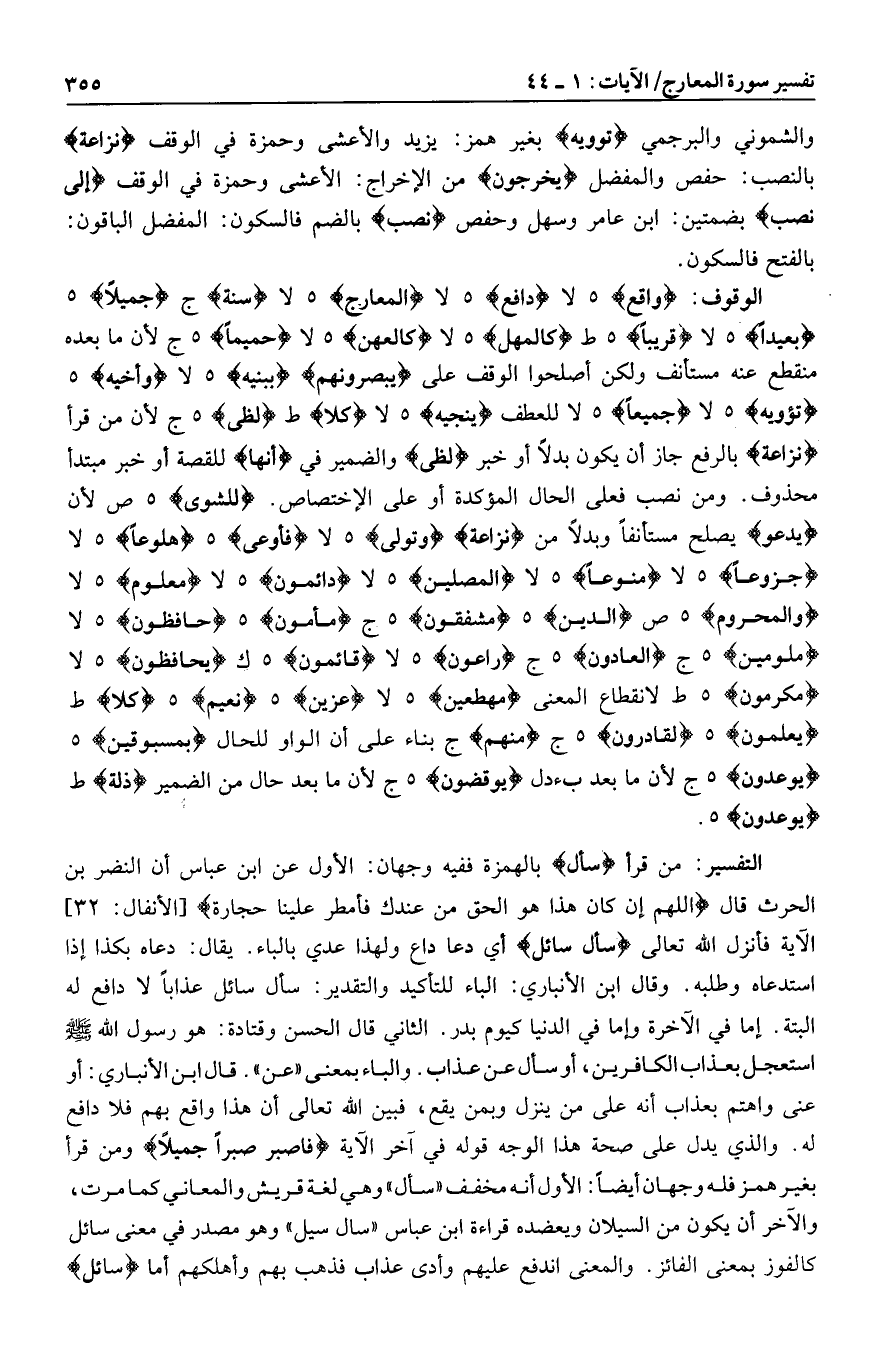 تفسير سورة المعارج/ الآيات: ١ ـ ٤٤ ٣٥٥
والشموني والبرجمي ﴿توويه﴾ بغير همز: يزيد والأعشى وحمزة في الوقف ﴿نزاعة﴾
بالنصب: حفص والمفضل ﴿يخرجون﴾ من الإخراج: الأعشى وحمزة في الوقف ﴿إلى
نصب﴾ بضمتين: ابن عامر وسهل وحفص ﴿نصب﴾ بالضم فالسكون: المفضل الباقون:
بالفتح فالسكون.
الوقوف: ﴿واقع﴾ ٥ لا ﴿دافع﴾ ٥ لا ﴿المعارج﴾ ٥ لا ﴿سنة﴾ ج ﴿جميلاً﴾ ٥
﴿بعيداً﴾ ٥ لا ﴿قريباً﴾ ٥ ط ﴿كالمهل﴾ ٥ لا ﴿كالعهن﴾ ٥ لا ﴿حميماً﴾ ٥ ج لأن ما بعده
منقطع عنه مستأنف ولكن أصلحوا الوقف على ﴿يبصرونهم﴾ ﴿ببنيه﴾ ٥ لا ﴿وأخيه﴾ ٥
﴿تؤويه﴾ ٥ لا ﴿جميعاً﴾ ٥ لا للعطف ﴿ينجيه﴾ ٥ لا ﴿كلا﴾ ط ﴿لظى﴾ ٥ ج لأن من قرأ
﴿نزاعة﴾ بالرفع جاز أن يكون بدلاً أو خبر ﴿لظى﴾ والضمير في ﴿أنها﴾ للقصة أو خبر مبتدأ
محذوف. ومن نصب فعلى الحال المؤكدة أو على الإختصاص. ﴿للشوى﴾ ٥ ص لأن
﴿يدعو﴾ يصلح مستأنفاً وبدلاً من ﴿نزاعة﴾ ﴿وتولى﴾ ٥ لا ﴿فأوعى﴾ ٥ ﴿هلوعاً﴾ ٥ لا
﴿جزوعاً﴾ ٥ لا ﴿منوعاً﴾ ٥ لا ﴿المصلين﴾ ٥ لا ﴿دائمون﴾ ٥ لا ﴿معلوم﴾ ٥ لا
﴿والمحروم﴾ ٥ ص ﴿الدين﴾ ٥ ﴿مشفقون﴾ ٥ ج ﴿مأمون﴾ ٥ ﴿حافظون﴾ ٥ لا
﴿ملومين﴾ ٥ ج ﴿العادون﴾ ٥ ج ﴿راعون﴾ ٥ لا ﴿قائمون﴾ ٥ ك ﴿يحافظون﴾ ٥ لا
﴿مكرمون﴾ ٥ ط لانقطاع المعنى ﴿مهطعين﴾ ٥ لا ﴿عزين﴾ ٥ ﴿نعيم﴾ ٥ ﴿كلا﴾ ط
﴿يعلمون﴾ ٥ ﴿لقادرون﴾ ٥ ج ﴿منهم﴾ ج بناء على أن الواو للحال ﴿بمسبوقين﴾ ٥
﴿يوعدون﴾ ٥ ج لأن ما بعد بءدل ﴿يوقضون﴾ ٥ ج لأن ما بعد حال من الضمير ﴿ذلة﴾ ط
﴿يوعدون﴾ ٥.
التفسير: من قرأ ﴿سأل﴾ بالهمزة ففيه وجهان: الأول عن ابن عباس أن النضر بن
الحرث قال ﴿اللهم إن كان هذا هو الحق من عندك فأمطر علينا حجارة﴾ [الأنفال: ٣٢]
الآية فأنزل الله تعالى ﴿سأل سائل﴾ أي دعا داع ولهذا عدي بالباء. يقال: دعاه بكذا إذا
استدعاه وطلبه. وقال ابن الأنباري: الباء للتأكيد والتقدير: سأل سائل عذاباً لا دافع له
البتة. إما في الآخرة وإما في الدنيا كيوم بدر. الثاني قال الحسن وقتادة: هو رسول الله ﷺ
استعجل بعذاب الكافرين، أو سأل عن عذاب. والباء بمعنى «عن». قال ابن الأنباري: أو
عنى واهتم بعذاب أنه على من ينزل وبمن يقع، فبين الله تعالى أن هذا واقع بهم فلا دافع
له. والذي يدل على صحة هذا الوجه قوله في آخر الآية ﴿فاصبر صبراً جميلاً﴾ ومن قرأ
بغير همز فله وجهان أيضاً: الأول أنه مخفف «سأل» وهي لغة قريش والمعاني كما مرت،
والآخر أن يكون من السيلان ويعضده قراءة ابن عباس «سال سيل» وهو مصدر في معنى سائل
كالفوز بمعنى الفائز. والمعنى اندفع عليهم وأدى عذاب فذهب بهم وأهلكهم أما ﴿سائل﴾